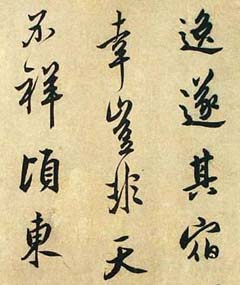 逸遂其宿
幸豈非天
不祥頃東